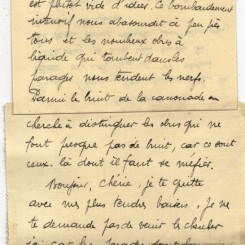 est plutôt vide d'idées. Ce bombardement
intensif nous abasourdit à peu près
tous et les nombreux obus à
liquide qui tombent dans les
parages nous tendent les nerfs.
Parmi le bruit de la canonnade on
cherche à distinguer les obus qui ne
font presque pas de bruit, car ce sont
ceux-là dont il faut se méfier.
Bonjour, chérie, je te quitte
avec mes plus tendres baisers, je ne
te demande pas de venir les chercher
ici car les